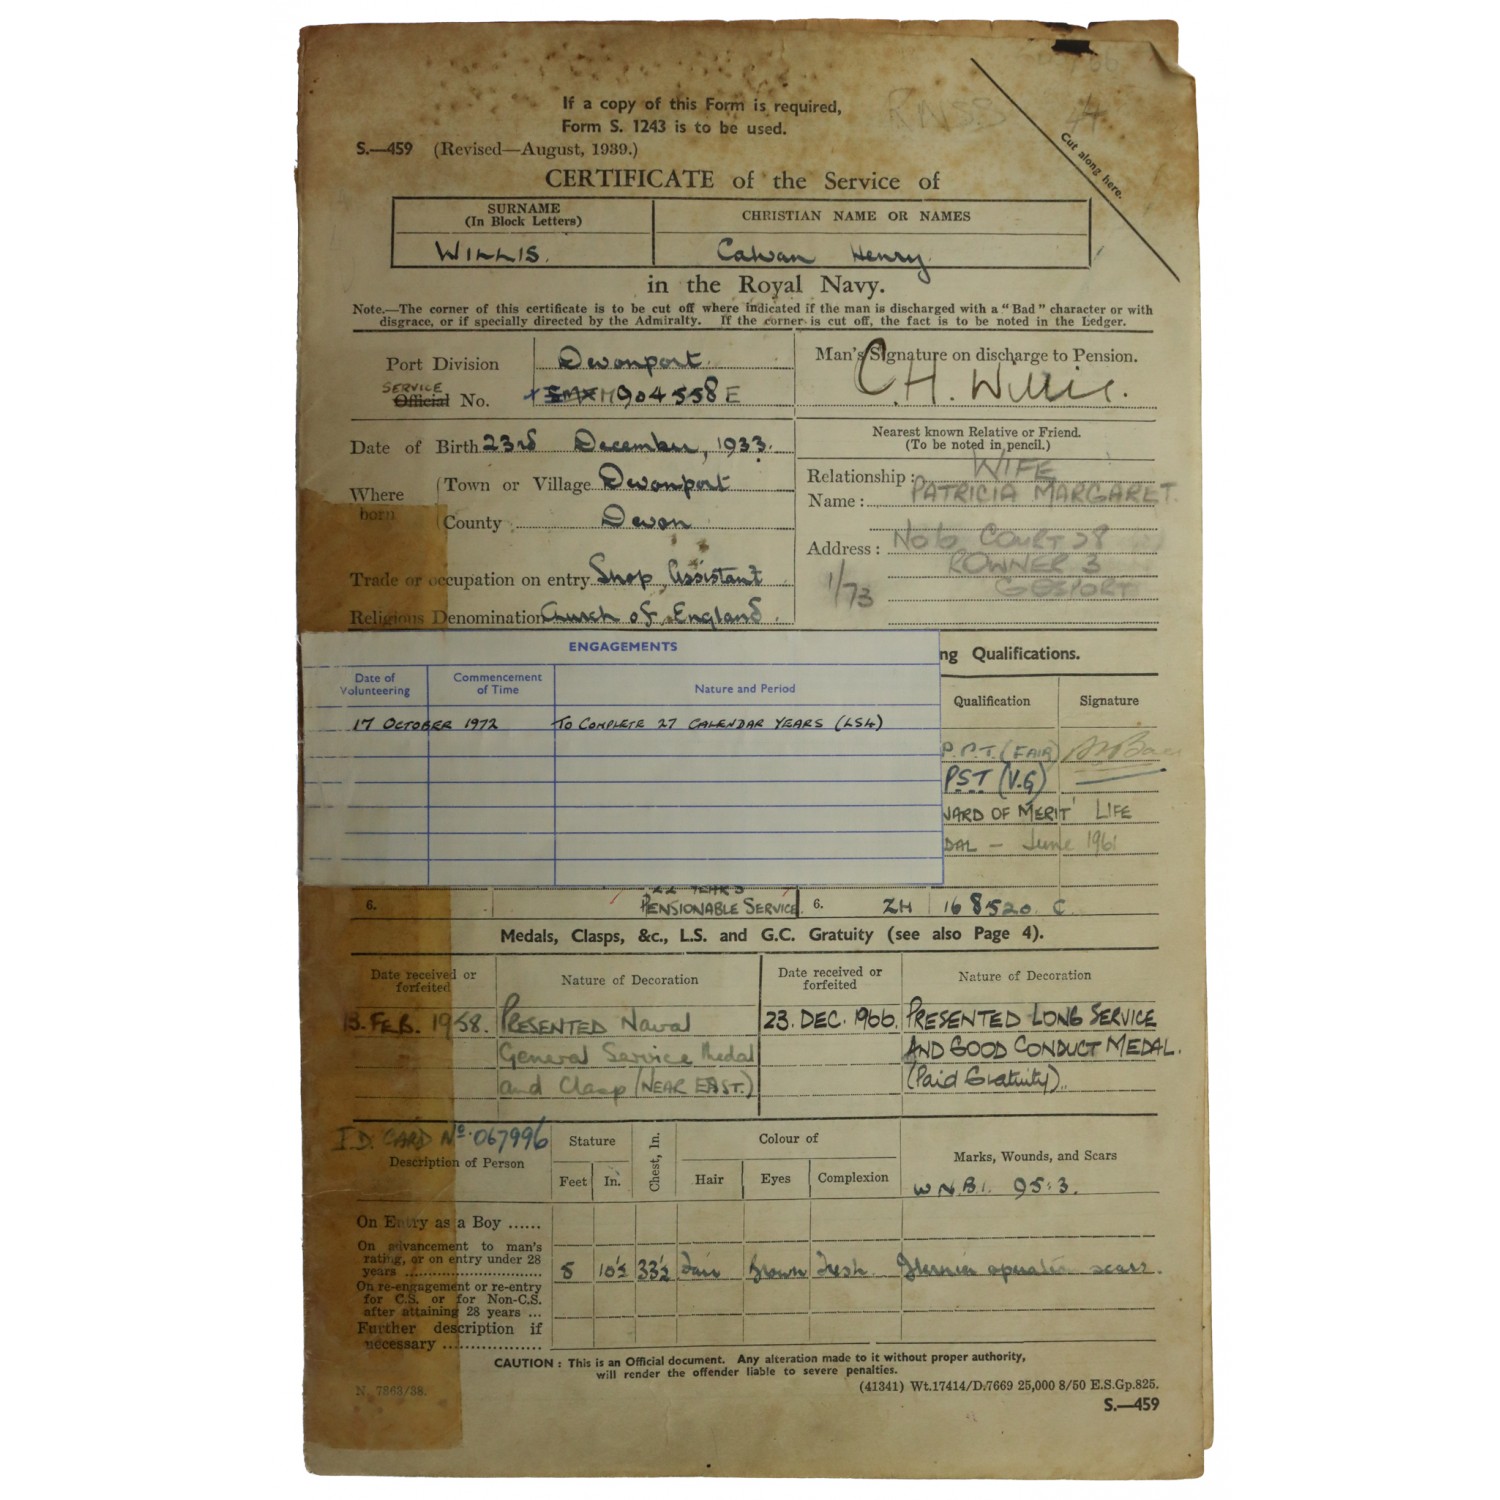 If a copy of this Form is required,
Form S. 1243 is to be used.
RNSB
S.—459 (Revised—August, 1939.)
Cut along here.
CERTIFICATE of the Service of
SURNAME
(In Block Letters)
CHRISTIAN NAME OR NAMES
WILLIS. Calvan Henry.
in the Royal Navy.
Note.—The corner of this certificate is to be cut off where indicated if the man is discharged with a "Bad" character or with
disgrace, or if specially directed by the Admiralty. If the corner is cut off, the fact is to be noted in the Ledger.
Port Division Devonport.
Man's Signature on discharge to Pension.
C.H. Willis.
SERVICE
Official No. 904558 E
Date of Birth 23rd December, 1933.
Nearest known Relative or Friend.
(To be noted in pencil.)
Where born
Town or Village Devonport
County Devon
Relationship: WIFE
Name: PATRICIA MARGARET.
Address: No 6 COURT 28
ROWNER 3
GOSPORT
1/73
Trade or occupation on entry Shop Assistant
Religious Denomination Church of England.
ENGAGEMENTS
Date of Volunteering
Commencement of Time
Nature and Period
17 OCTOBER 1972 TO COMPLETE 27 CALENDAR YEARS (LS4)
ng Qualifications.
Qualification Signature
P.P.T. (FAIR)
PST (V.G)
WARD OF MERIT' LIFE
DAL — June 1961
6. 22 YEARS
PENSIONABLE SERVICE. 6. ZH 168520. C.
Medals, Clasps, &c., L.S. and G.C. Gratuity (see also Page 4).
Date received or forfeited
Nature of Decoration
Date received or forfeited
Nature of Decoration
13. FEB. 1958. PRESENTED Naval
General Service Medal
and Clasp (NEAR EAST.)
23. DEC. 1966. PRESENTED LONG SERVICE
AND GOOD CONDUCT MEDAL.
(Paid Gratuity).
I.D. CARD No. 067996
Description of Person
Stature
Feet In.
Chest, In.
Colour of
Hair Eyes Complexion
Marks, Wounds, and Scars
W.N.B.1. 95:3.
On Entry as a Boy ......
On advancement to man's
rating, or on entry under 28
years
5 10½ 33½ Fair Brown Fresh. operation scars.
On re-engagement or re-entry
for C.S. or for Non-C.S.
after attaining 28 years ...
Further description if
necessary
CAUTION: This is an Official document. Any alteration made to it without proper authority,
will render the offender liable to severe penalties.
N. 7863/38.
(41341) Wt.17414/D.7669 25,000 8/50 E.S.Gp.825.
S.—459